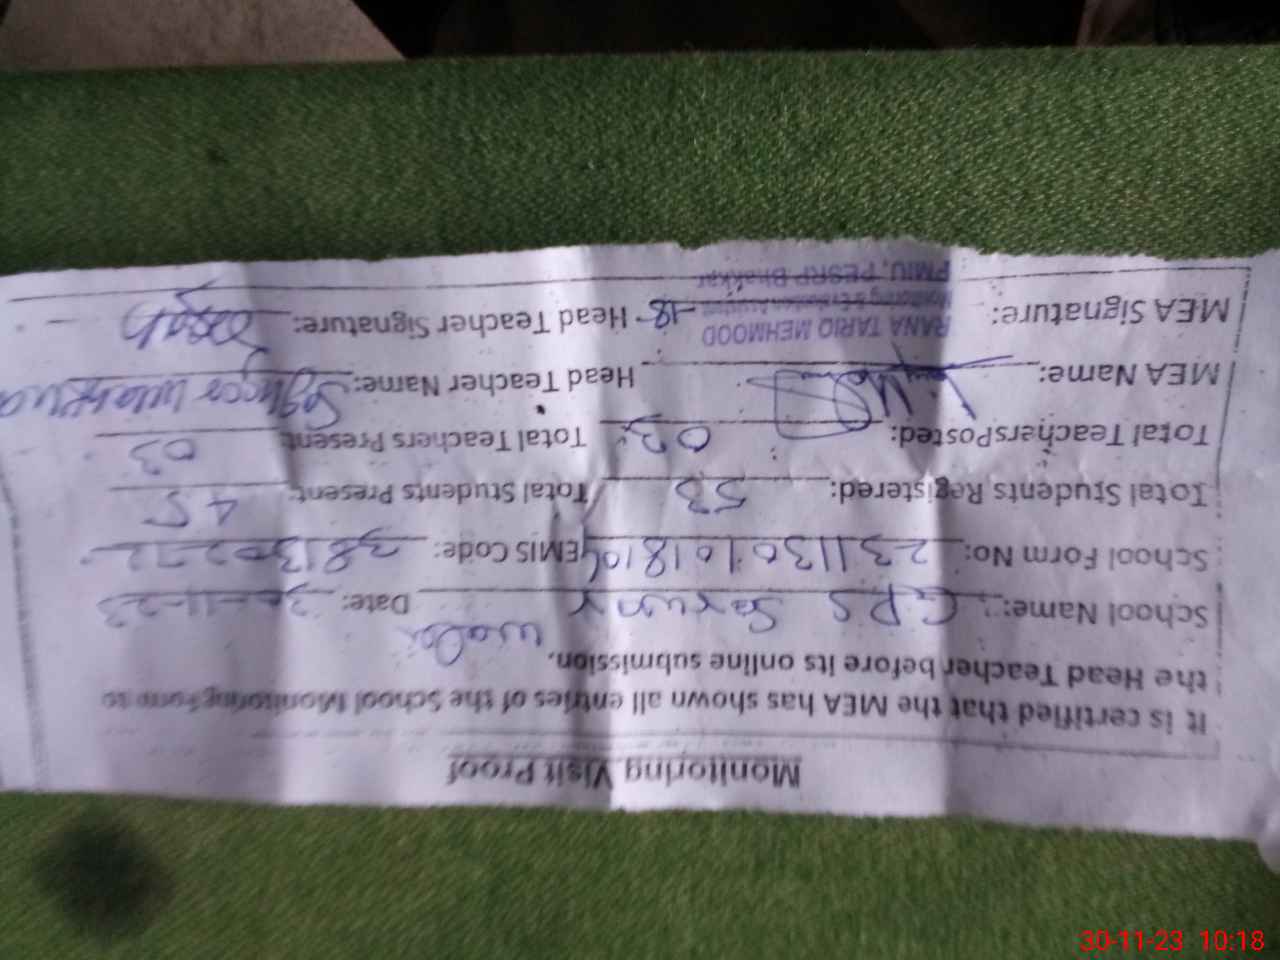 Monitoring Visit Proof
It is certified that the MEA has shown all entries of the School Monitoring Form to
the Head Teacher before its online submission.
School Name: G.P.S Date: 30-11-23
wala
School Form No: EMIS Code: 38130272
Total Students Registered: 53 Total Students Present: 45
Total Teachers Posted: 03 Total Teachers Present: 03
MEA Name: Head Teacher Name:
MEA Signature: Head Teacher Signature:
RANA TARIQ MEHMOOD
Monitoring & Evaluation Assistant
-18
PMIU, PESRP Bhakkar
30-11-23 10:18